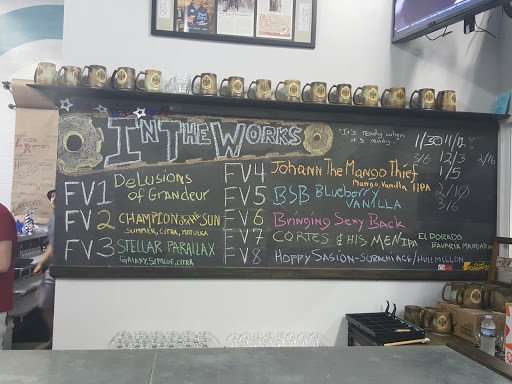 IN THE WORKS
"It's ready when
it's ready."
FV1 Delusions
of Grandeur
FV2 CHAMPION SUN
SUMMER, CITRA, MOTUEKA
FV3 STELLAR PARALLAX
GALAXY, SIMCOE, CITRA
FV4 Johann The Mango Thief
Mango Vanilla IPA
FV5 BSB Blueberry
VANILLA
FV6 Bringing Sexy Back
FV7 CORTES & HIS MEN IPA EL DORADO
BAVARIA MANDARINA
FV8 HOPPY SASION-SORACHI ACE/HULL MELLON
11/30
3/6 12/3 2/16
1/5
2/10
3/6